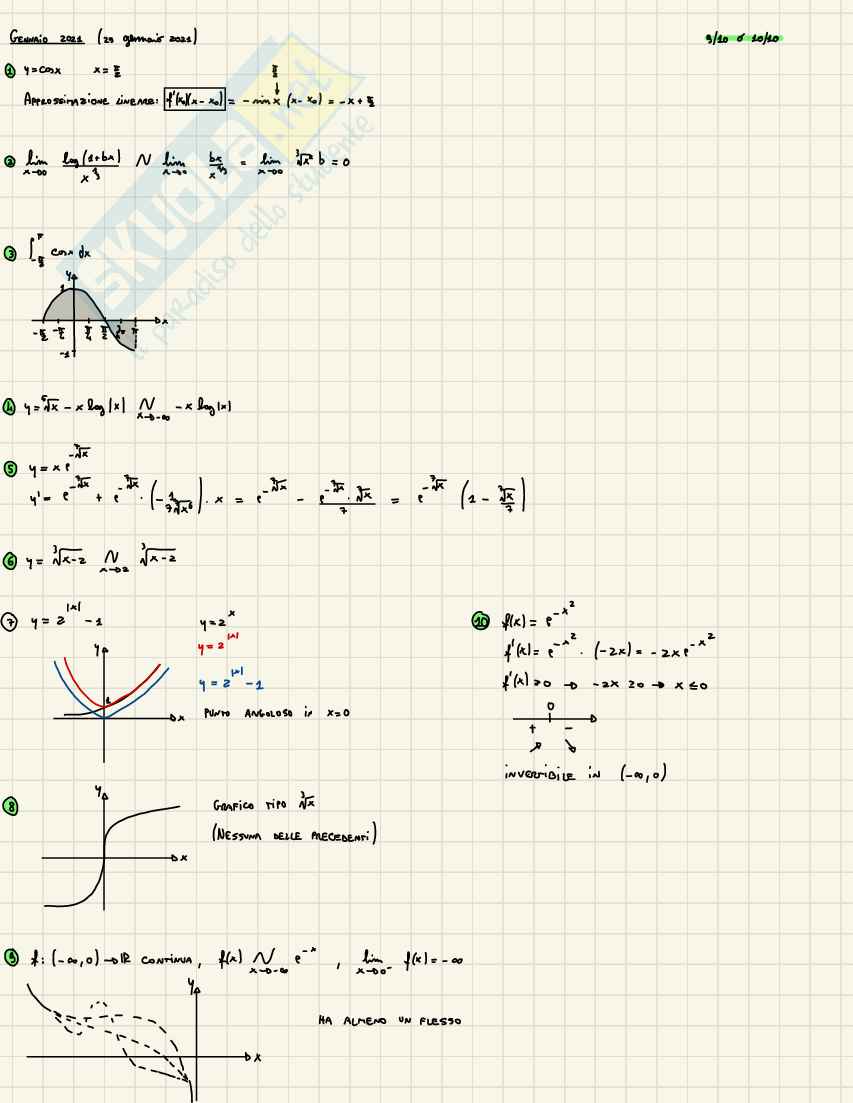 GENNAIO 2021 (29 gennaio 2021)
9/10 o 10/10
1 y = cosx x = π/2
APPROSSIMAZIONE LINEARE: f'(x₀)(x-x₀) = -sin x (x-x₀) = -x + π/2
π/2
2 lim x→0 log(1+bx)/x^⅔ ~ lim x→0 bx/x^⅔ = lim x→0 ∛x b = 0
3 ∫ -π/2 π cosx dx
y
1
x
-π/2 -π/4 π/4 π/2 π
-1
4 y = ⁵√x - x log|x| ~ x→-∞ -x log|x|
5 y = x e^(-⁷√x)
y' = e^(-⁷√x) + e^(-⁷√x) · (-1/(7⁷√x⁶)) · x = e^(-⁷√x) - (e^(-⁷√x) · ⁷√x)/7 = e^(-⁷√x) (1 - ⁷√x/7)
6 y = ∛(x-2) ~ x→2 ∛(x-2)
7 y = 2^|x| - 1
y = 2^x
y = 2^|x|
y = 2^|x| - 1
PUNTO ANGOLOSO IN x=0
y
1
x
10 f(x) = e^(-x²)
f'(x) = e^(-x²) · (-2x) = -2x e^(-x²)
f'(x) ≥ 0 → -2x ≥ 0 → x ≤ 0
0
+ -
INVERTIBILE IN (-∞,0)
8 GRAFICO TIPO ∛x
(NESSUNA DELLE PRECEDENTI)
y
x
9 f: (-∞,0) → ℝ CONTINUA, f(x) ~ x→-∞ e^(-x), lim x→0⁻ f(x) = -∞
y
HA ALMENO UN FLESSO
x
SKUOLA.net
il paradiso dello studente